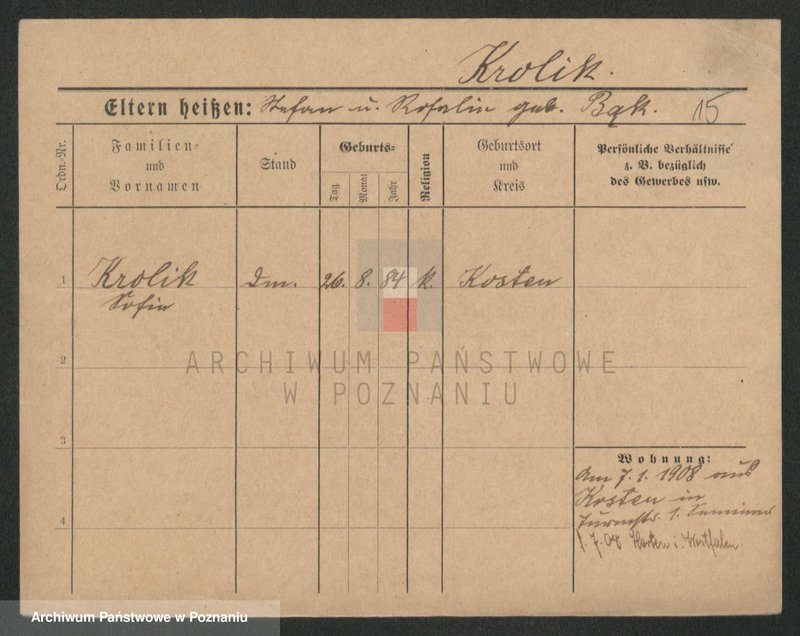 Krolik.
Eltern heißen: Stefan u. Rosalie geb. Bąk. 15
Ordn.-Nr.
Familien-
und
Vornamen
Stand
Geburts-
Tag
Monat
Jahr
Religion
Geburtsort
und
Kreis
Persönliche Verhältnisse
z. B. bezüglich
des Gewerbes usw.
1 Krolik 26. 8. 84 k. Kosten
Sofie
2
ARCHIWUM PAŃSTWOWE
W POZNANIU
3
Wohnung:
Am 7. 1. 1908 aus
Kosten in
1.
4
1. 7. 08 i. Westfalen
Archiwum Państwowe w Poznaniu